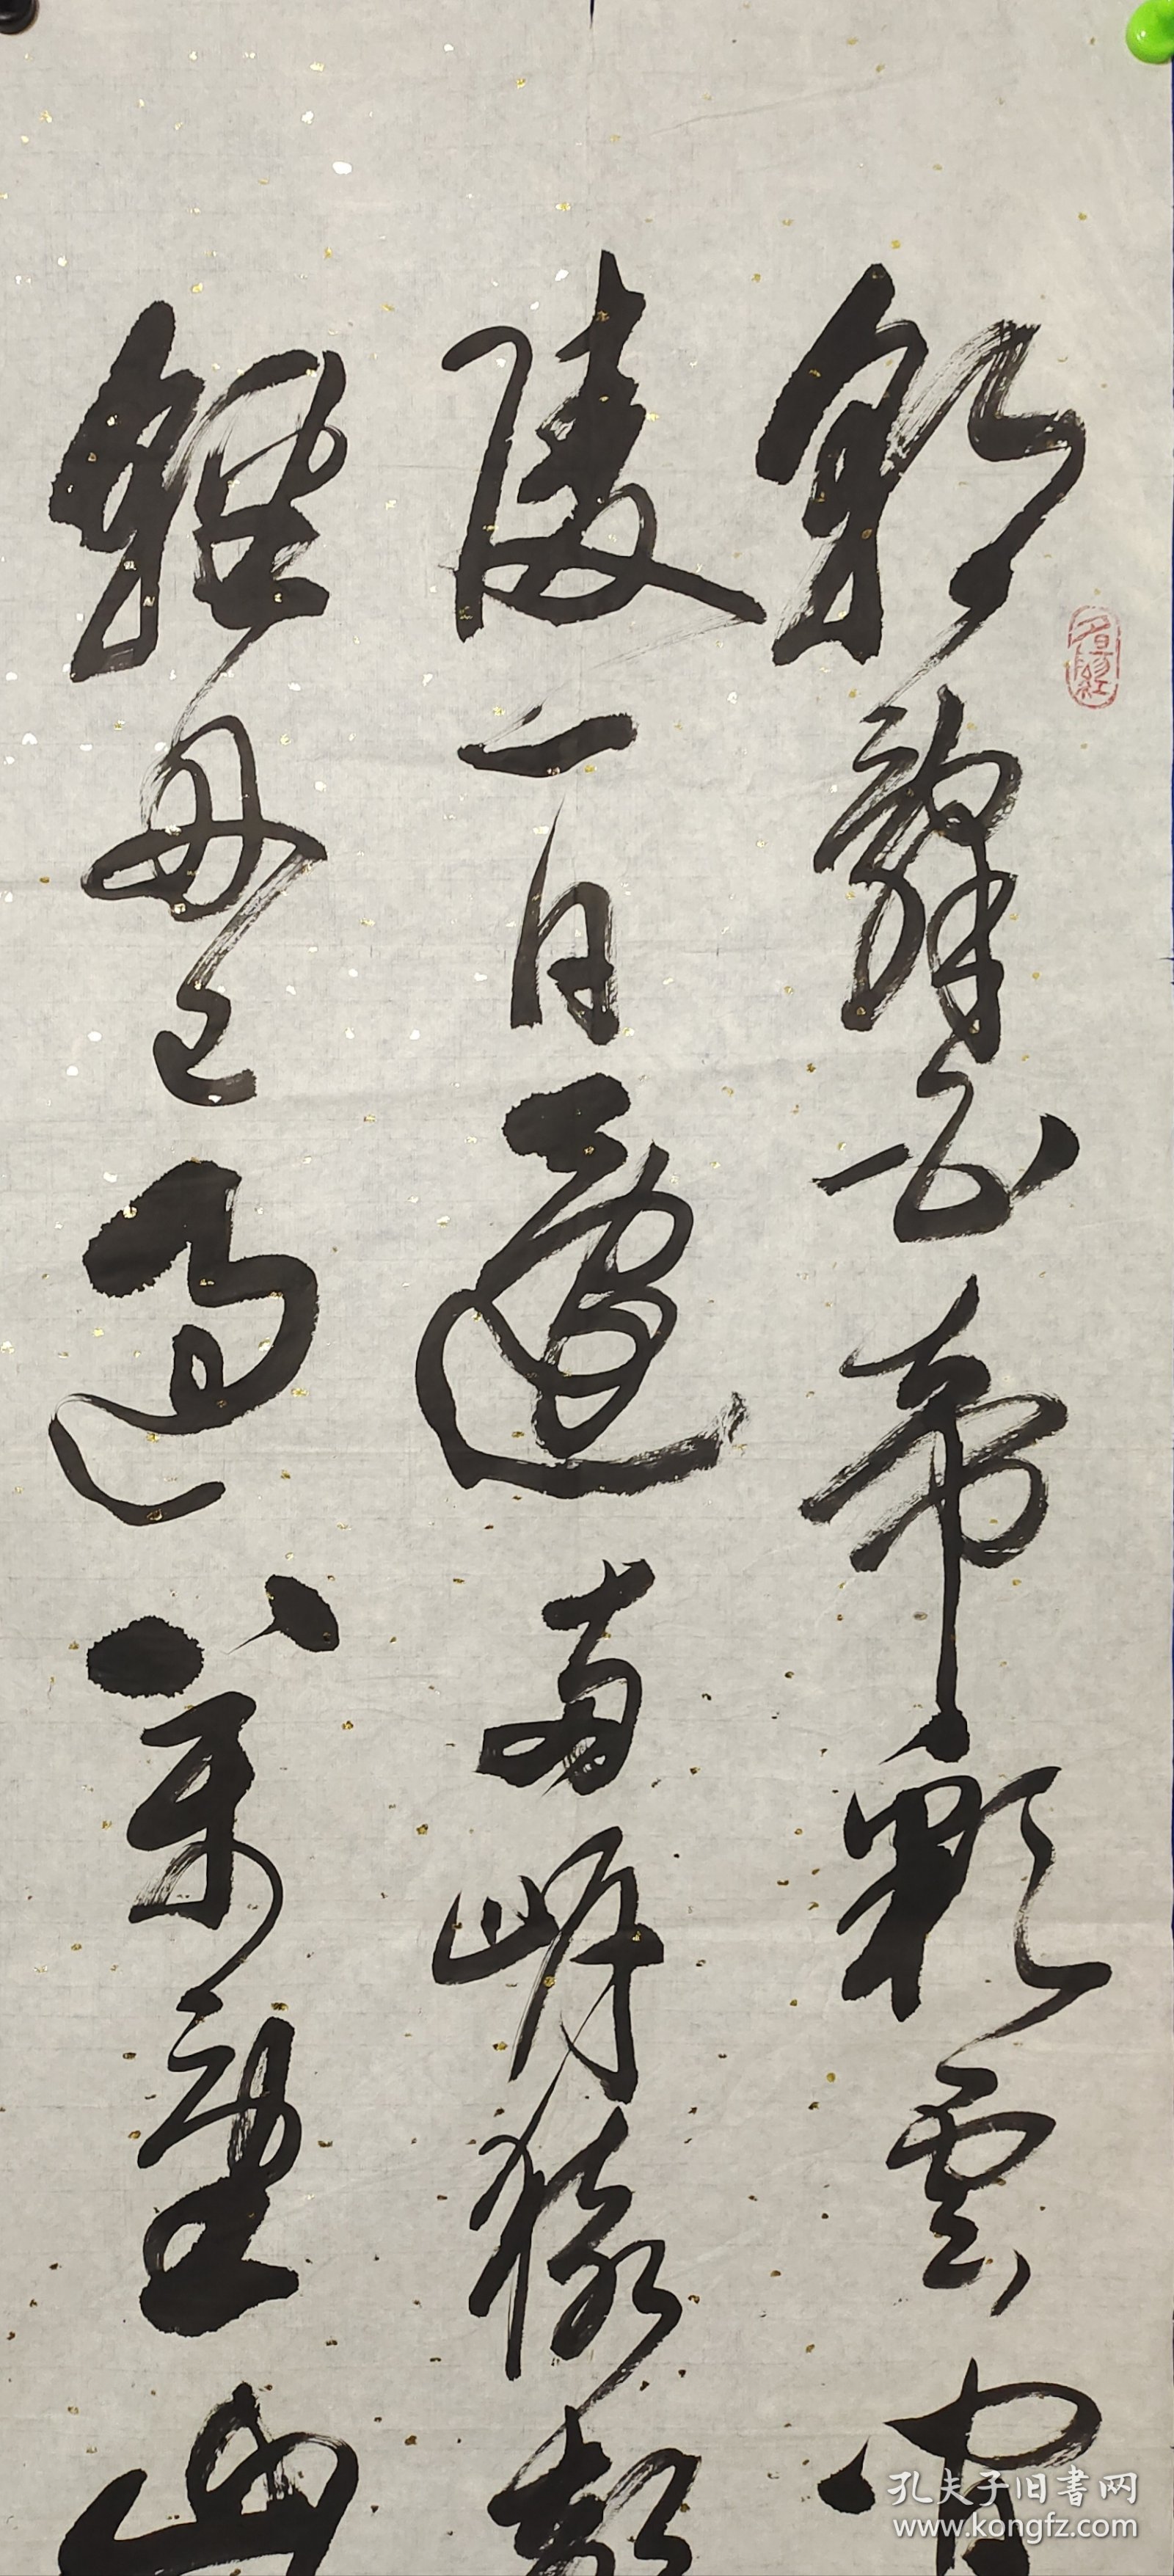 朝辭白帝彩雲間
陵一日還兩岸猿聲
輕舟已過萬重山
孔夫子旧書网
www.kongfz.com